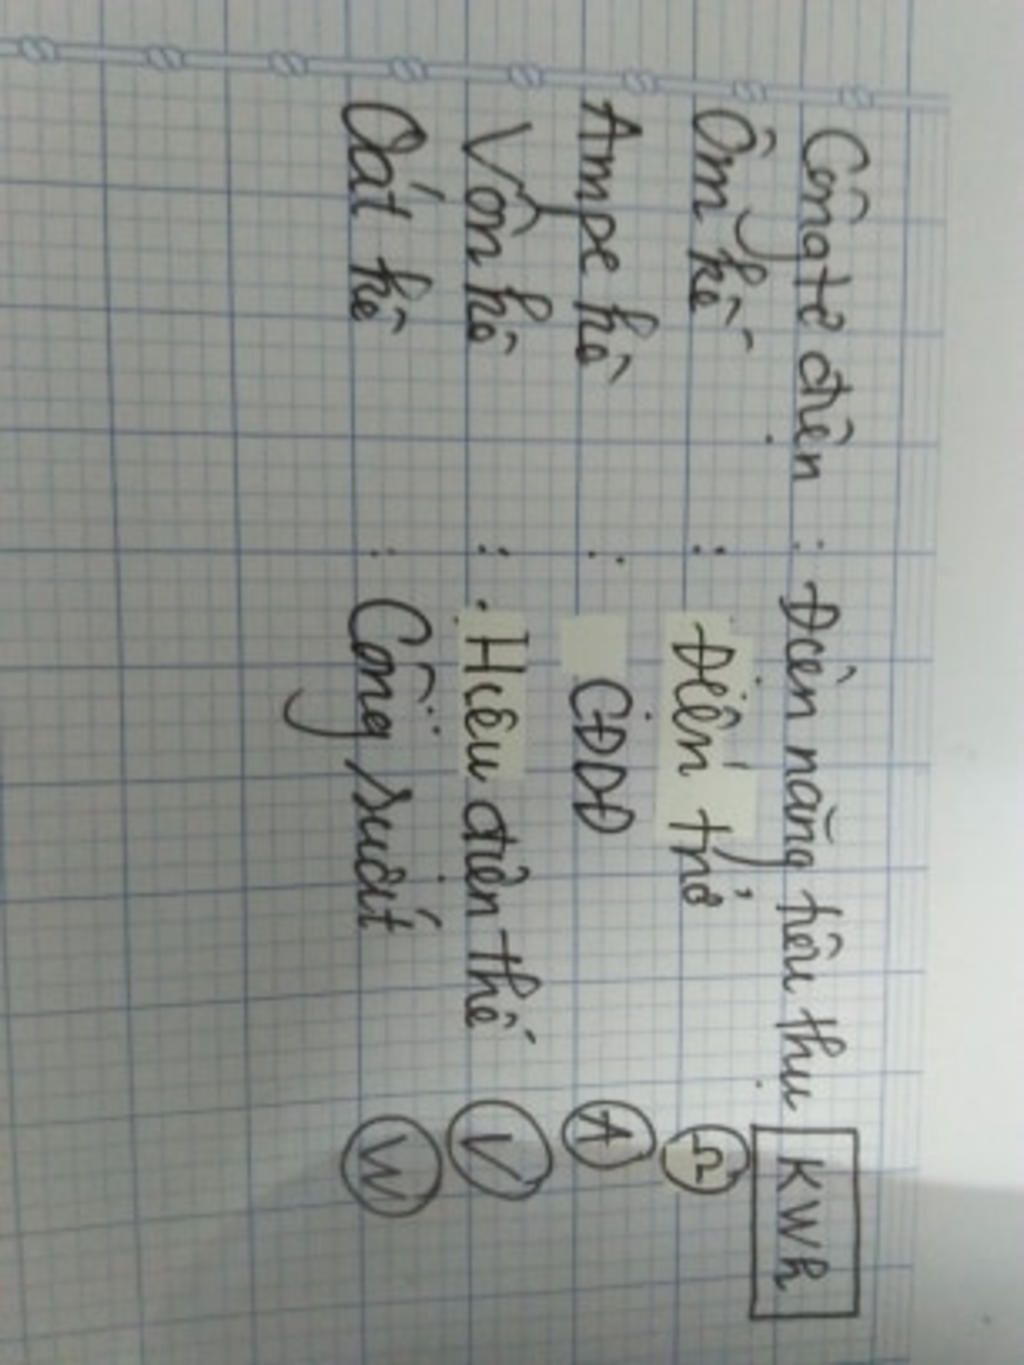 Công tơ điện : Điện năng tiêu thụ KWh
Ôm kế : Điện trở Ω
Ampe kế : CĐDĐ A
Vôn kế : Hiệu điện thế V
Oát kế : Công suất W